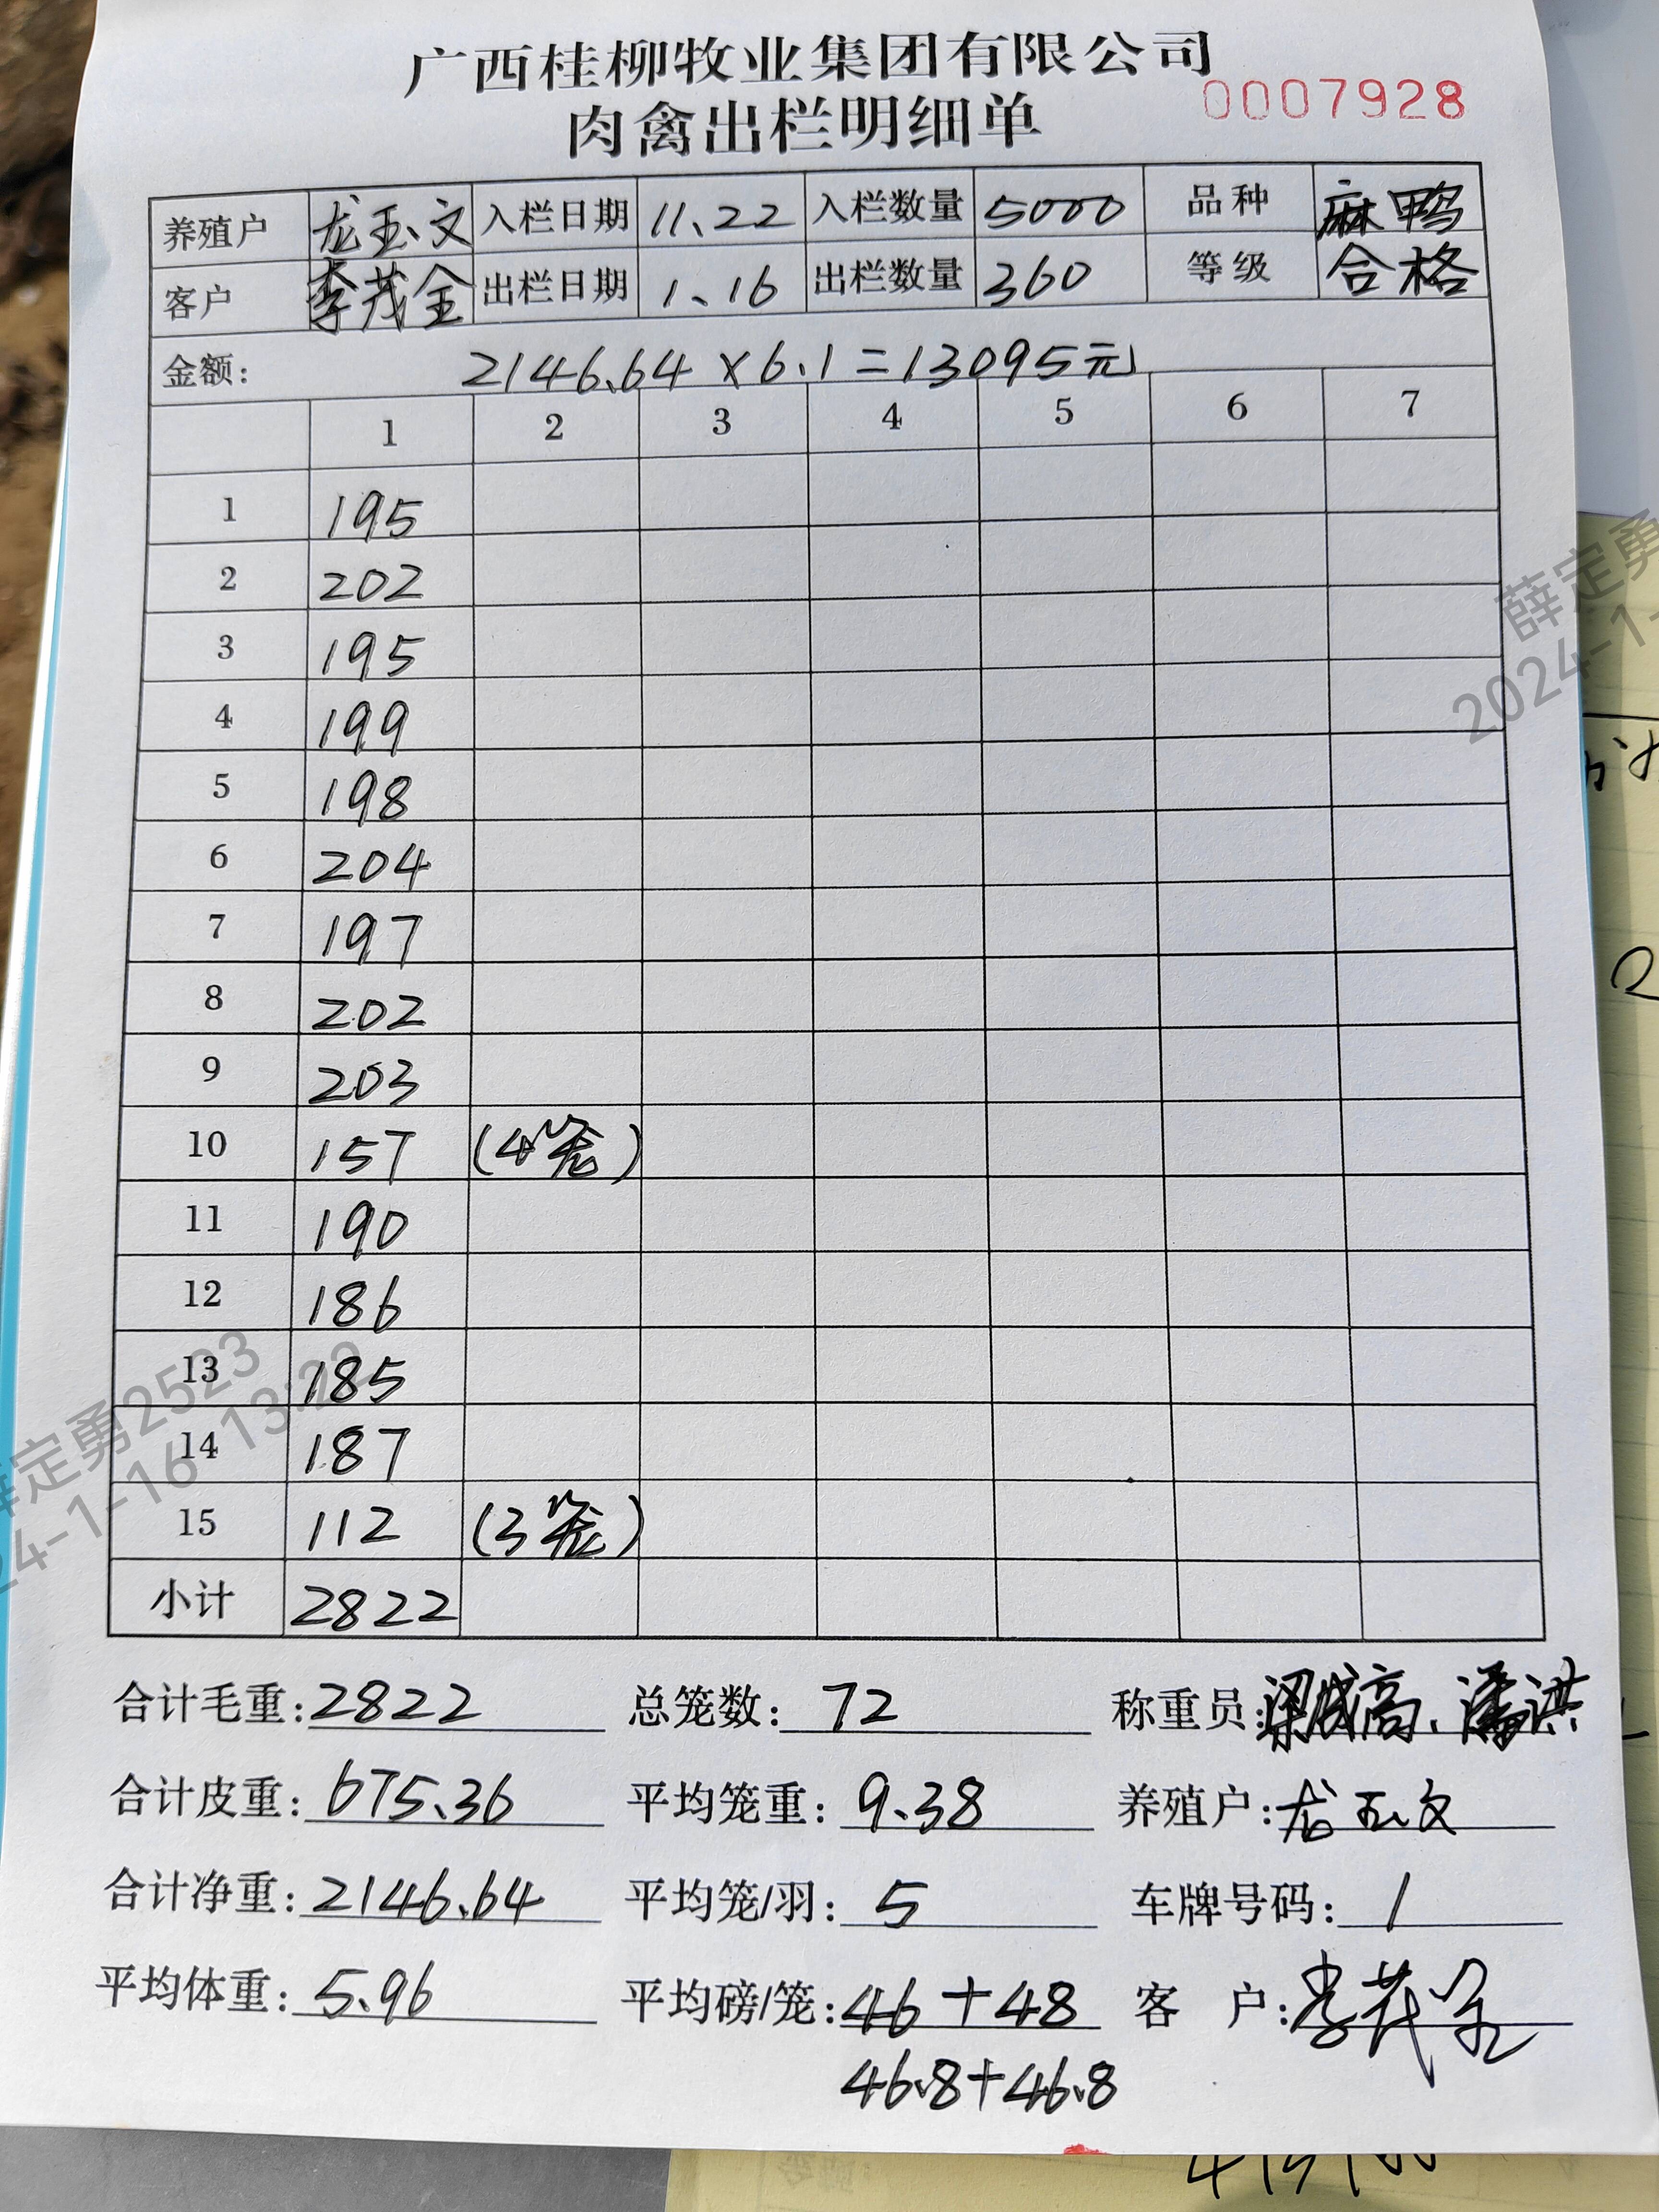 广西桂柳牧业集团有限公司
肉禽出栏明细单 0007928
养殖户 龙玉文 入栏日期 11.22 入栏数量 5000 品种 麻鸭
客户 李茂金 出栏日期 1.16 出栏数量 360 等级 合格
金额: 2146.64×6.1=13095元
1 2 3 4 5 6 7
1 195
2 202
3 195
4 199
5 198
6 204
7 197
8 202
9 203
10 157 (4笼)
11 190
12 186
13 185
14 187
15 112 (3笼)
小计 2822
合计毛重: 2822 总笼数: 72 称重员: 梁成高、潘洪
合计皮重: 675.36 平均笼重: 9.38 养殖户: 龙玉文
合计净重: 2146.64 平均笼/羽: 5 车牌号码: 1
平均体重: 5.96 平均磅/笼: 46+48 客 户: 李茂金
46.8+46.8
薛定勇
2024-1-
薛定勇2523
24-1-16 13:22